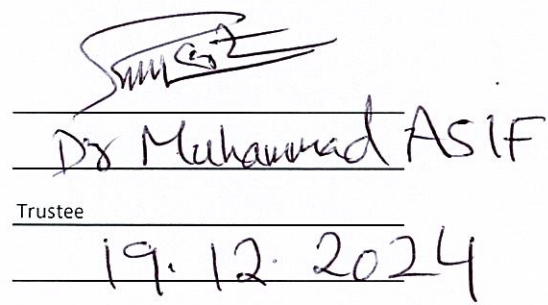 Dr Muhammad ASIF
Trustee
19.12.2024